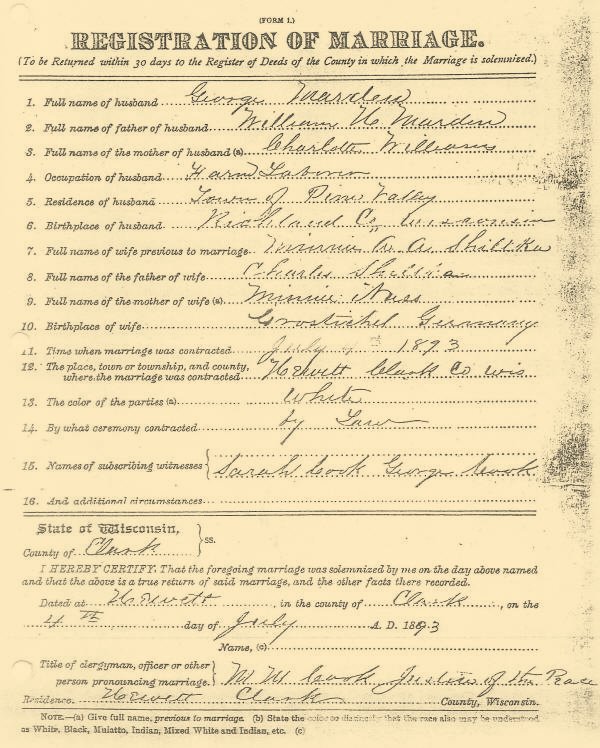 (FORM 1.)
REGISTRATION OF MARRIAGE.
(To be Returned within 30 days to the Register of Deeds of the County in which the Marriage is solemnized.)
1. Full name of husband George Marden
2. Full name of father of husband William H Marden
3. Full name of the mother of husband (a) Charlott Williams
4. Occupation of husband Farm Laborer
5. Residence of husband Town of Pine Valley
6. Birthplace of husband Richland Co, Wisconsin
7. Full name of wife previous to marriage Minnie A
8. Full name of the father of wife Charles
9. Full name of the mother of wife (a) Minnie
10. Birthplace of wife Germany
11. Time when marriage was contracted July 4th 1893
12. The place, town or township, and county, where the marriage was contracted Hewett Clark Co Wis
13. The color of the parties (a) White
14. By what ceremony contracted by Law
15. Names of subscribing witnesses Sarah Cook George Cook
16. And additional circumstances
State of Wisconsin,
County of Clark ss.
I HEREBY CERTIFY, That the foregoing marriage was solemnized by me on the day above named
and that the above is a true return of said marriage, and the other facts there recorded.
Dated at Hewett, in the county of Clark, on the
4th day of July A. D. 1893
Name, (c)
Title of clergyman, officer or other
person pronouncing marriage. M M Cook Justice of the Peace
Residence. Hewett Clark County, Wisconsin.
NOTE.—(a) Give full name, previous to marriage. (b) State the color so distinctly that the race also may be understood
as White, Black, Mulatto, Indian, Mixed White and Indian, etc. (c)